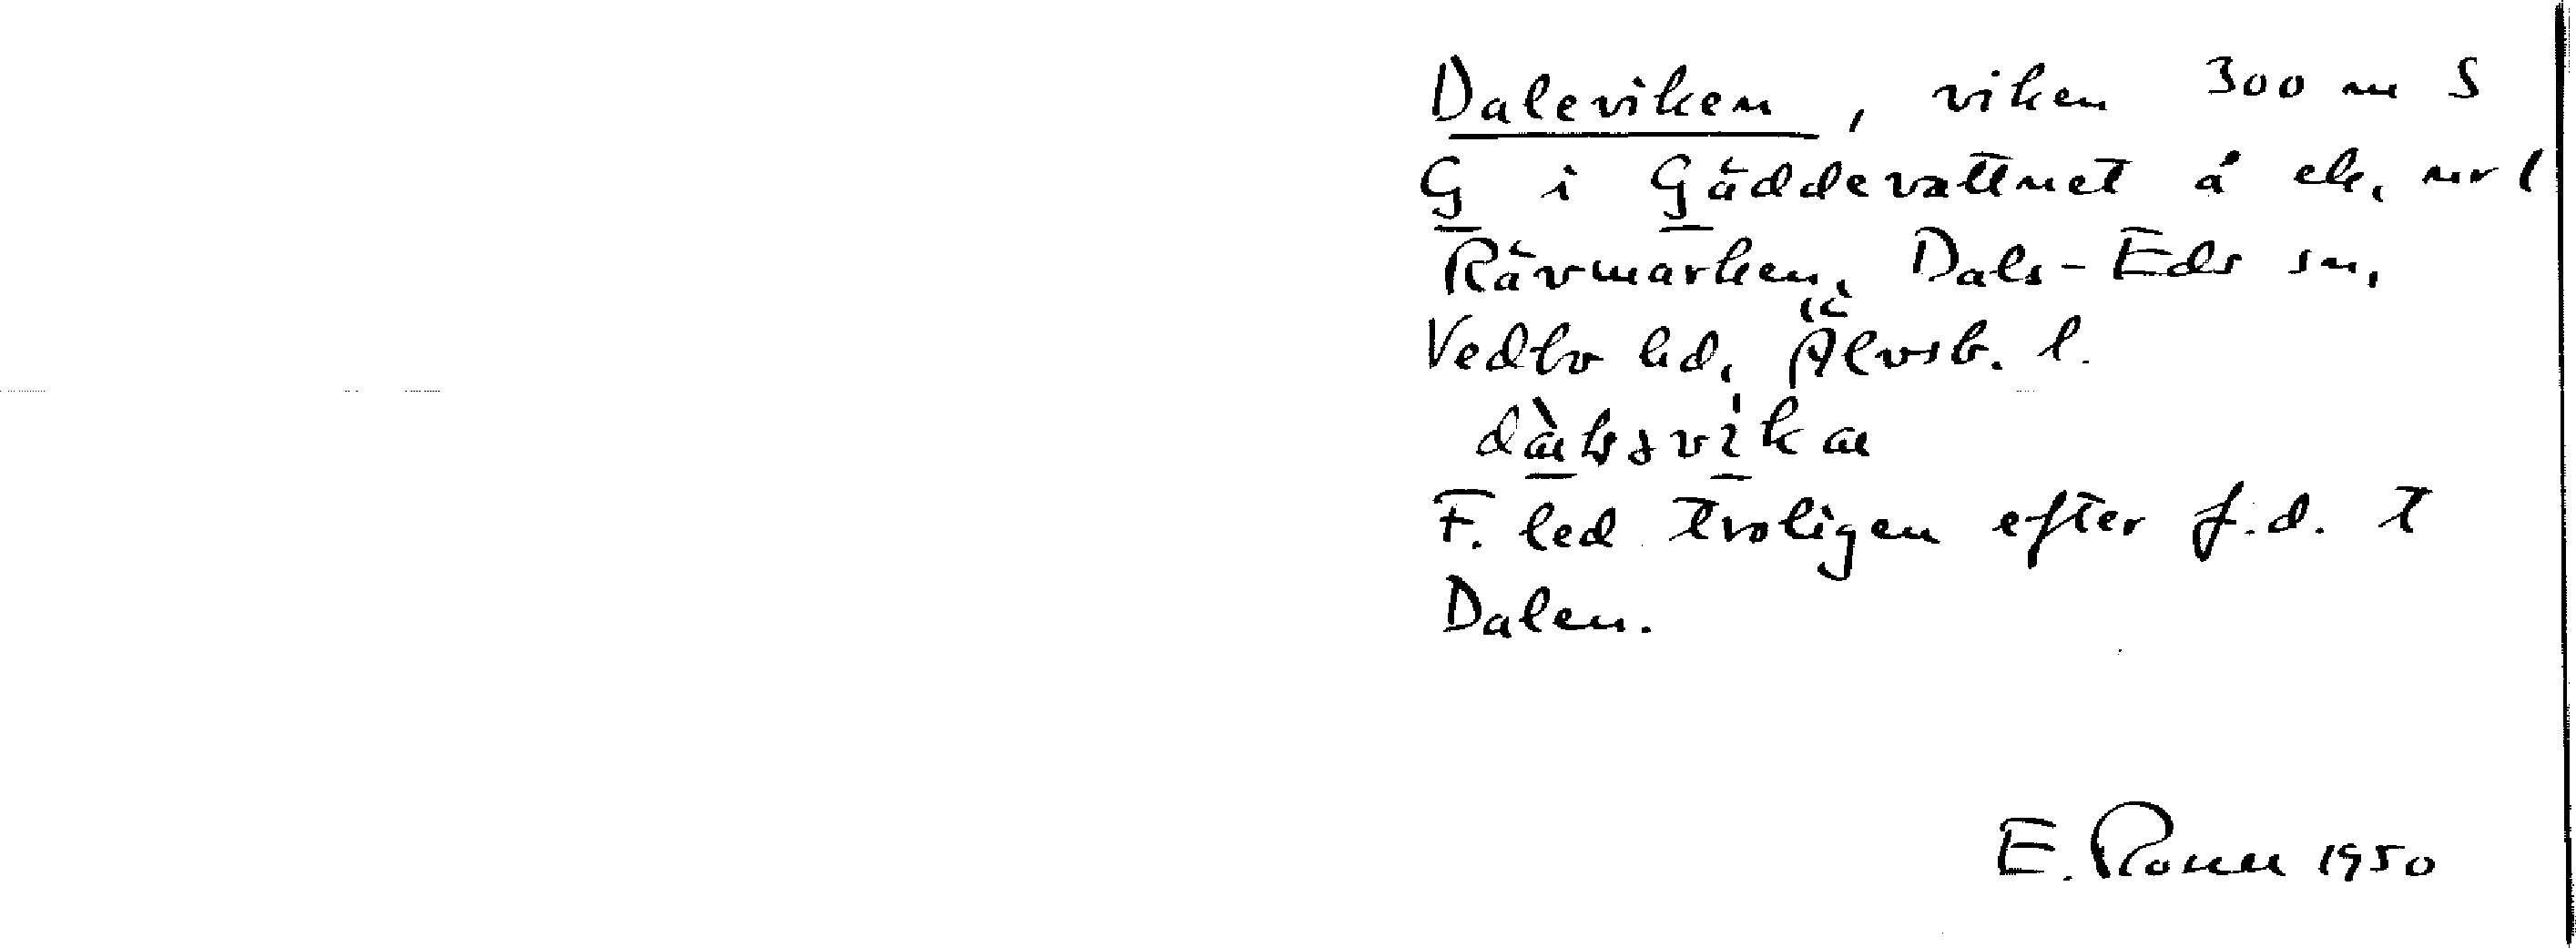 Daleviken, viken 300 m S
G i Gäddevattnet å ek. nr 1
Rävmarken, Dals-Eds sn,
Vedbo hd, Älvsb. l.
F. led troligen efter f.d. t
Dalen.
E. 1950